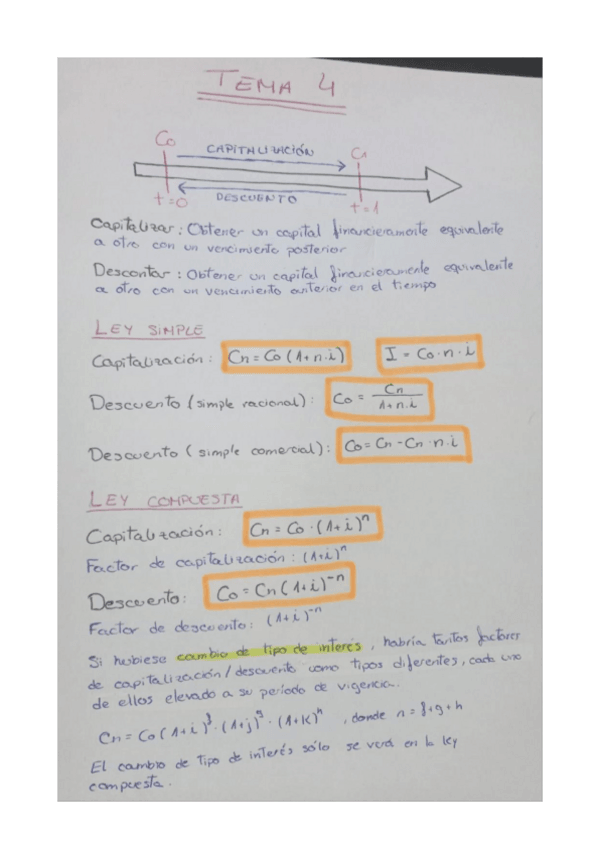 TEMA 4
Co CAPITALIZACIÓN C1
t=0 DESCUENTO t=1
Capitalizar: Obtener un capital financieramente equivalente
a otro con un vencimiento posterior
Descontar: Obtener un capital financieramente equivalente
a otro con un vencimiento anterior en el tiempo
LEY SIMPLE
Capitalización: Cn = Co (1+n.i) I = Co·n·i
Descuento (simple racional): Co = Cn / 1+n.i
Descuento (simple comercial): Co = Cn - Cn·n.i
LEY COMPUESTA
Capitalización: Cn = Co·(1+i)^n
Factor de capitalización: (1+i)^n
Descuento: Co = Cn (1+i)^-n
Factor de descuento: (1+i)^-n
Si hubiese cambio de tipo de interés, habría tantos factores
de capitalización/descuento como tipos diferentes, cada uno
de ellos elevado a su período de vigencia.
Cn = Co (1+i)^f·(1+j)^g·(1+k)^h, donde n = f+g+h
El cambio de tipo de interés sólo se verá en la ley
compuesta.